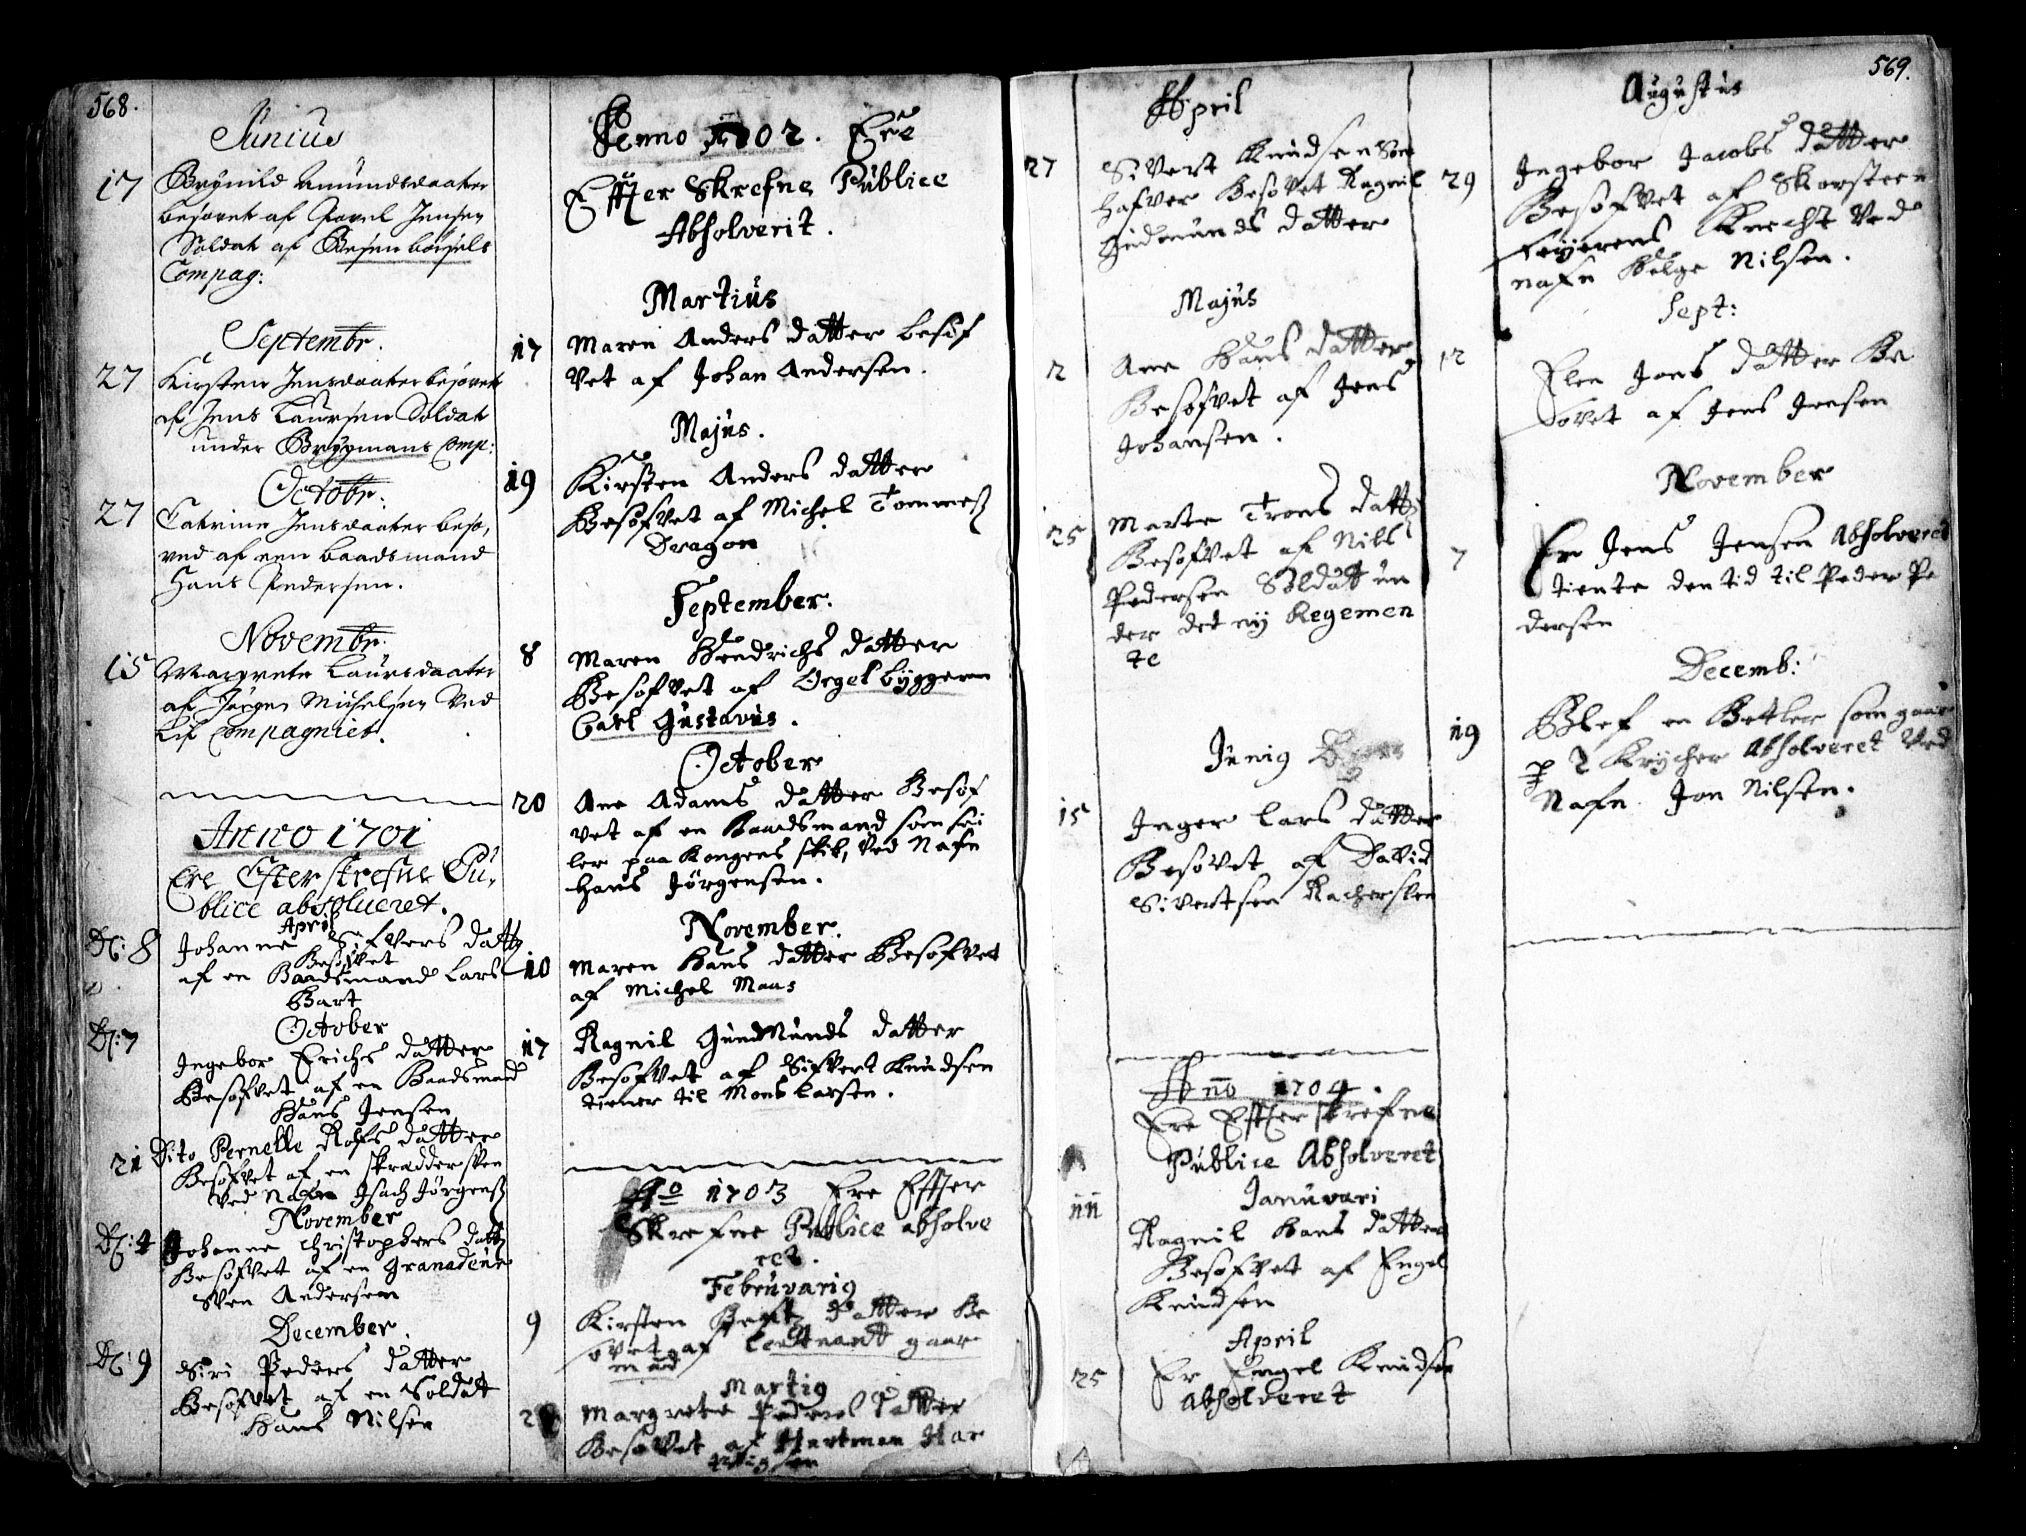 568.
Junius
17 Brynild Amundsdaater
besovet af Povel Jensen
Soldat af
Compag:
Septembr.
27 Kirsten Jensdaater besovet
af Jens Laursen Soldat
under Brygmans Comp:
Octobr:
27 Catrine Jensdaater beso,
ved af een baadsmand
Hans Pedersen.
Novembr.
15 Margrete Laursdaater
af Jörgen Michelsen Ved
Lif Compagniet.
Anno 1701
Ere Efter skrefne Pu,
blice absolueret.
April
D: 8 Johanne Sifvers datt
Besofvet
af en Baadsmand Lars
Bart
October
D: 7
Ingebor Erichs datter
Besofvet af en Baadsmand
Hans Jensen
21 Dito Pernelle Rolfs datter
Besofvet af en skreddersven
Ved Nafn Isach Jörgens
November
D: 4 Johanne Christophers datt
Besofvet af en Granadeur
Sven Andersen
December.
D: 9 Siri Peders datter
Besofvet af en Soldat
Hans Nilsen
Anno 1702. Ere
Effter Skrefne Publice
Absolverit.
Martius
17 Maren Anders datter besof
vet af Johan Andersen.
Majus.
19 Kirsten Anders datter
Besofvet af Michel Tommes
Dragon
September.
8 Maren Hendrichs datter
Besofvet af Orgelbyggeren
Carl Gustavus.
October
20 Ane Adams datter Besof
vet af en Baadsmand som sei
ler paa Kongens skib, Ved Nafn
Hans Jörgensen.
November.
10 Maren Hans datter Besofvet
af Michel Maas
17 Ragnil GundMunds datter
Besofvet af Sifvert Knudsen
tiener til Mons Larsen.
Ao 1703 Ere Effter
Skrefne Publice absolve
ret.
Februvarig
9 Kirsten datter Be
sovet af Leutnant gaar
mand
Martig
2 Margrete Peders datter
Besovet af Hartman Har
April
27 Sivert Knudsen Som
hafver Besovet Ragnil
Gudmunds datter
Majus
2 Ane Hans datter
Besofvet af Jens
Johansen.
25 Marte Trons datt
Besofvet af Nils
Pedersen Soldatt un
der det ny Regemen
te
Junig
15 Inger Lars datter
Besovet af David
Sivertsen Rachersven
Ano 1704.
Ere Effter skrefne
Publice Absolveret
Januvari
11
Ragnil Hans datter
Besofvet af Engel
Knudsen
April
25 Er Engel Knudsen
Absolveret
569.
Augustus
29 Ingebor Jacobs datter
Besofvet af Skorsteen
Feyerens Knecht Ved
nafn Helge Nilsen.
Sept:
12 Elen Jons datter Be
sovet af Jens Jensen
November
7 Er Jens Jensen Absolveret
tiente den tid til Peder Pe
dersen
Decemb:
19 Blef en Betler som gaar
p 2 Krycher Absolveret Ved
Nafn Jon Nilsen.